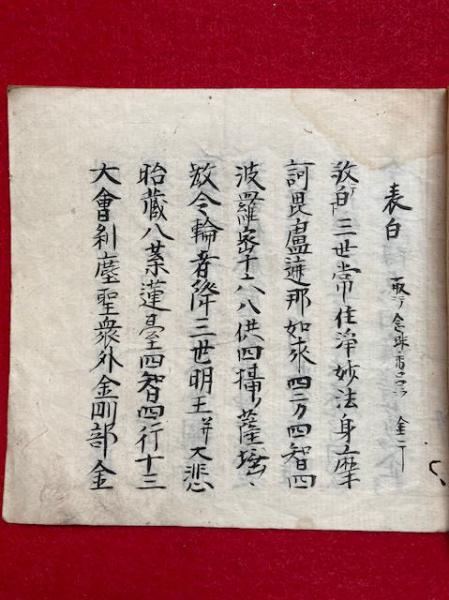 表白 取 念珠香呂 金
敬白三世常住淨妙法身摩
訶毘盧遮那如来四方四智四
波羅密十六八供四攝薩埵
教令輪者降三世明王并大悲
胎蔵八葉蓮臺四智四行十三
大會刹塵聖衆外金剛部金